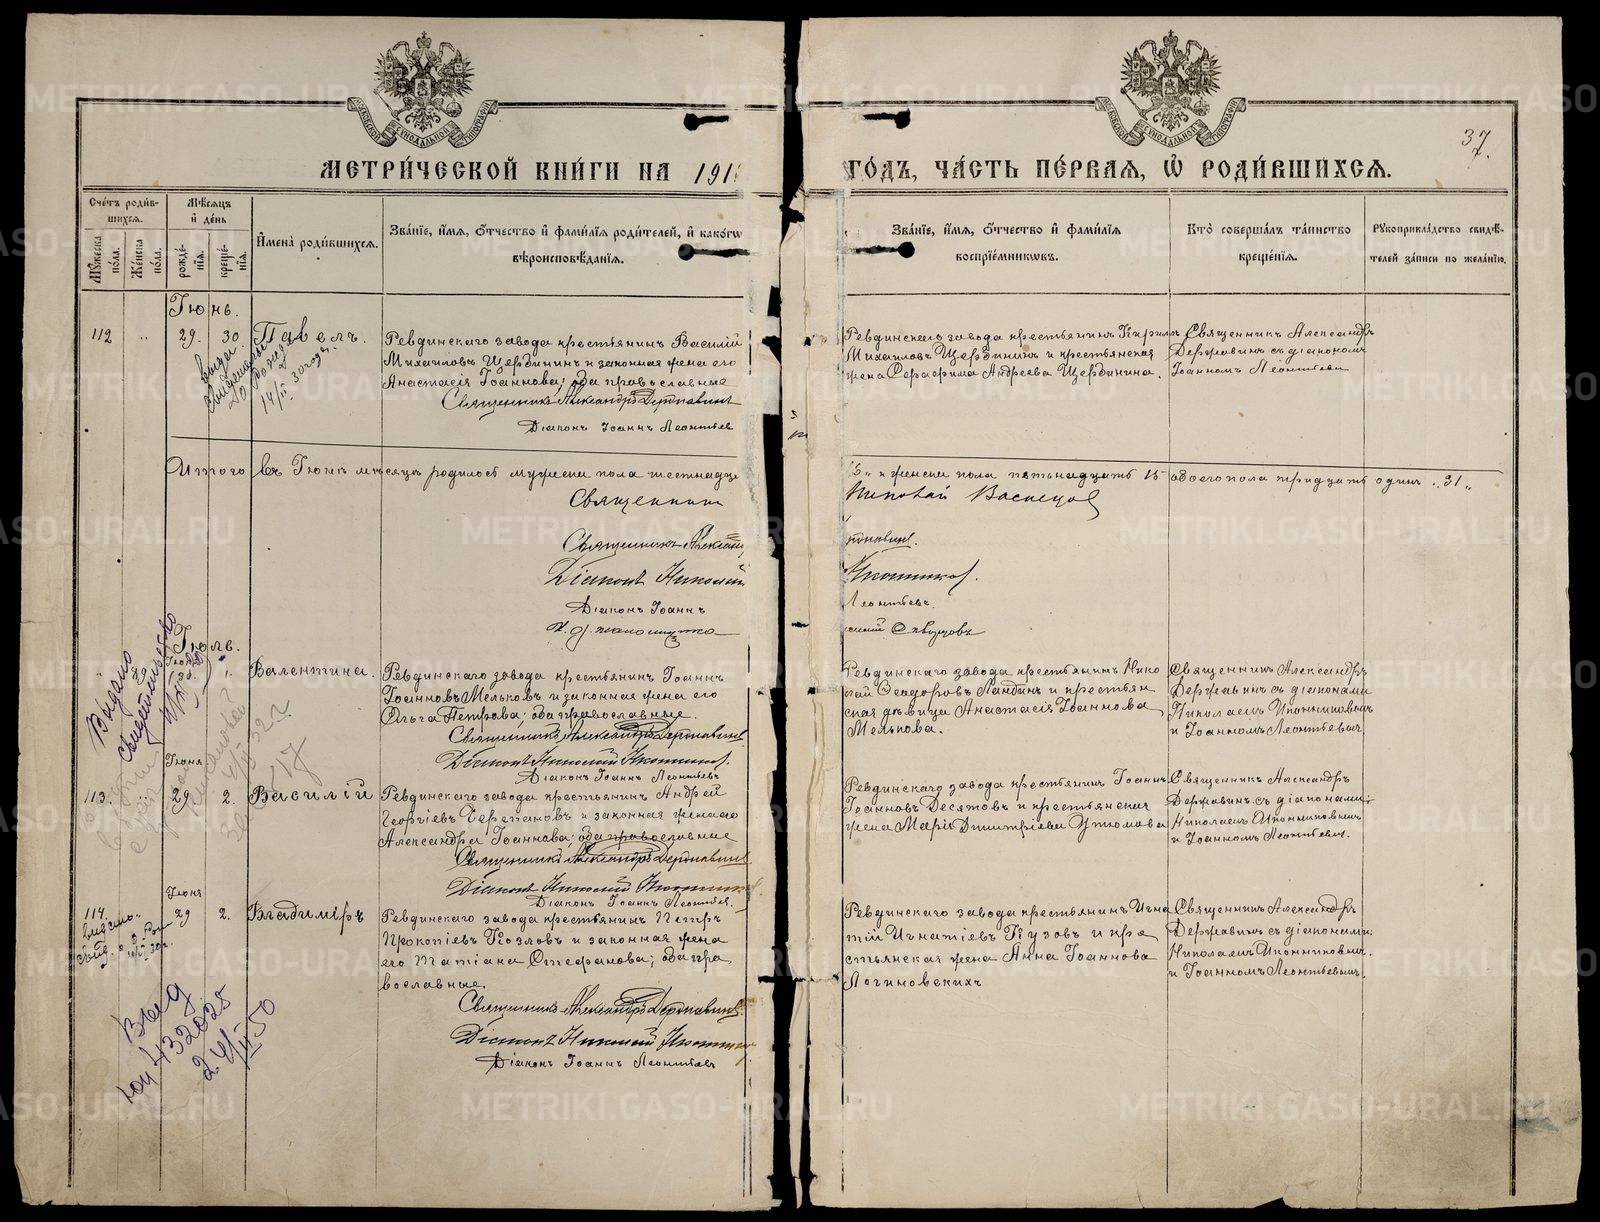 37.
МЕТРИ́ЧЕСКОЙ КНИ́ГИ НА 191
ГО́ДЪ, ЧА́СТЬ ПЕ́РВАЯ, Ѡ РОДИ́ВШИХСЯ.
Сче́тъ роди́в-
шихся.
Мѣ́сяцъ
и҆ де́нь
Муже́ска
по́ла.
Же́нска
по́ла.
рожде́-
нїѧ.
креще́-
нїѧ.
И҆мена̀ роди́вшихся.
Зва́нїе, и҆́мѧ, ѻ҆́тчество и҆ фами́лїѧ роди́телей, и҆ како́гѡ
вѣроисповѣ́данїѧ.
Зва́нїе, и҆́мѧ, ѻ҆́тчество и҆ фами́лїѧ
воспрїе́мникѡвъ.
Кто̀ соверша́лъ та́инство
креще́нїѧ.
Рꙋкоприкла́дство свидѣ́-
телей за́писи по жела́нїю.
Іюнь.
112 „ 29. 30. Павелъ.
Ревдинскаго завода крестьянинъ Василій
Михаиловъ Щербининъ и законная жена его
Анастасія Іоаннова; оба православные
Священникъ Александръ Державинъ
Діаконъ Іоаннъ Леонтьев
Ревдинскаго завода крестьянинъ Кирилъ
Михаиловъ Щербининъ и крестьянская
жена Серафима Андреева Щербинина.
Священникъ Александръ
Державинъ съ діакономъ
Іоанномъ Леонтьевы
14/II 30 года.
Итого въ Іюнѣ мѣсяцѣ родилось мужеска пола шестнадца
„ и женска пола пятьнадцать 15 обоего пола тридцать одинъ „ 31 „
Священник
Николай Васнецов
Священникъ Алекса
ржавинъ.
Діаконъ Николай
Иконников.
Діаконъ Іоаннъ
Леонтьевъ.
И. д. псаломщика
Іюль.
Выдано
свидѣтельство
Іюня
30. 1. Валентина.
Ревдинскаго завода крестьянинъ Іоаннъ
Іоанновъ Мельковъ и законная жена его
Ольга Петрова; оба православные.
Священникъ Александръ Державинъ
Діаконъ Николай Иконников.
Діаконъ Іоаннъ Леонтьевъ
Ревдинскаго завода крестьянинъ Нико
лай Ѳеодоровъ Ландинъ и крестьян
ская дѣвица Анастасія Іоаннова
Мелькова.
Священникъ Александръ
Державинъ съ діаконами
Николаемъ Иконниковымъ
и Іоанномъ Леонтьевым
Іюня
113. 29 2. Василій
Ревдинскаго завода крестьянинъ Андрей
Георгіевъ Черепановъ и законная жена его
Александра Іоаннова; оба православные
Священникъ Александръ Державинъ
Діаконъ Николай Иконников
Діаконъ Іоаннъ Леонтьев.
Ревдинскаго завода крестьянинъ Іоаннъ
Іоанновъ Десятовъ и крестьянская
жена Марія Димитріева Утюмова
Священникъ Александръ
Державинъ съ діаконами
Николаемъ Иконниковымъ
и Іоанномъ Леонтьевым.
Іюня
114. 29 2. Владиміръ
Ревдинскаго завода крестьянинъ Петръ
Прокопіевъ Козловъ и законная жена
его Татіана Стефанова; оба пра
вославные.
Священникъ Александръ Державинъ
Діаконъ Николай Иконников
Діаконъ Іоаннъ Леонтьевъ
Ревдинскаго завода крестьянинъ Игна
тій Игнатіевъ Кузовъ и кре
стьянская жена Анна Іоаннова
Логиновскихъ
Священникъ Александръ
Державинъ съ діаконами
Николаемъ Иконниковым.
и Іоанномъ Леонтьевым.
Выд
432025
24/II 50
METRIKI.GASO-URAL.RU